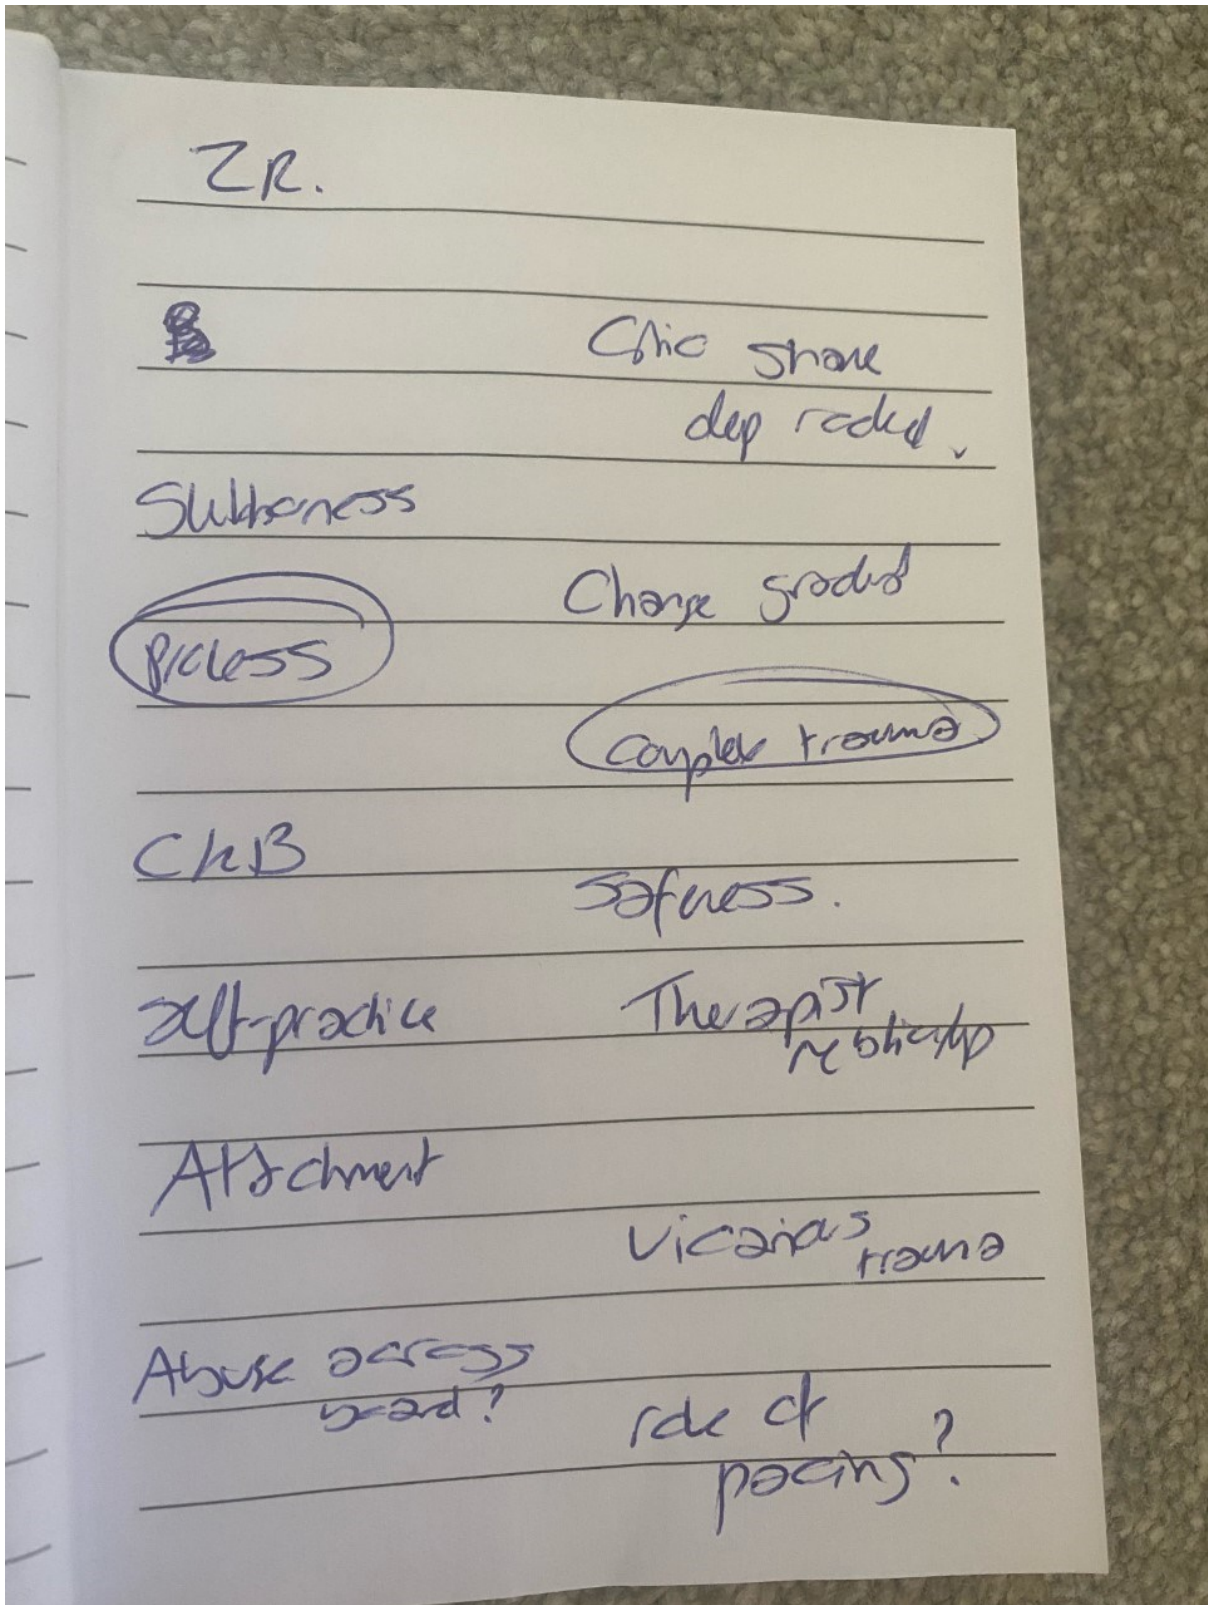 ZR.
shame
deep rooted.
Stubborness
Change gradual
Process
Complex trauma
Safeness.
Self-practice
Therapist
relationship
Attachment
Vicarious
trauma
Abuse across
board?
role of
pacing?